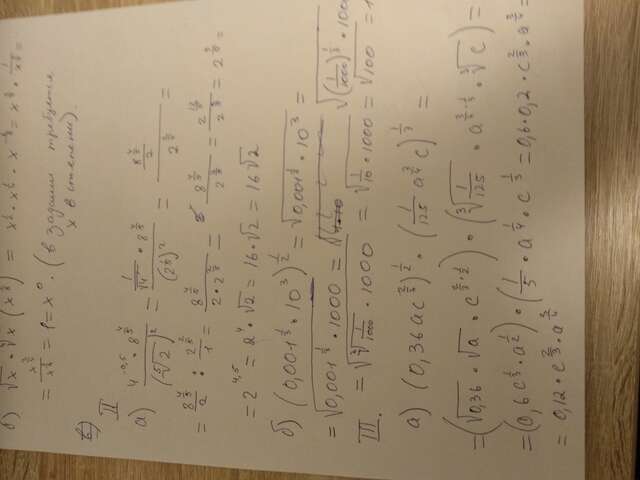 б) √x · ∜x (x^{3/8}) = x^{1/2} · x^{1/4} · x^{-3/4} = x^{3/4} · 1/x^{3/4} =
= x^{3/4}/x^{3/4} = 1 = x^0. (в задании требуется
x в степени).
в)
II
а) (4^{-0,5} · 8^{4/5})/(⁵√2)^2 = (1/√4 · 8^{4/5})/(2^{1/5})^2 = (8^{4/5}/2)/2^{2/5} =
= 8^{4/5}/2 : 2^{2/5}/1 = 8^{4/5}/(2·2^{2/5}) =
= 2^{4,5} = 2^4 · √2 = 16·√2 = 16√2
б) (0,001^{1/3} · 10^3)^{1/2} = √(0,001^{1/3} · 10^3) =
= √(0,001^{1/3} · 1000) = √((1/1000)^{1/3} · 100
III. = √(∛(1/1000) · 1000) = √(1/10 · 1000) = √100 = 1
а) (0,36ac^{2/3})^{1/2} · (1/125 a^{3/4} c)^{1/3} =
= (√0,36 · √a · c^{2/3·1/2}) · (∛(1/125) · a^{3/4·1/3} · ∛c) =
= (0,6c^{1/3} · a^{1/2}) · (1/5 · a^{1/4} · c^{1/3} = 0,6·0,2 · c^{2/3} · a^{3/4} =
= 0,12 · c^{2/3} · a^{3/4}